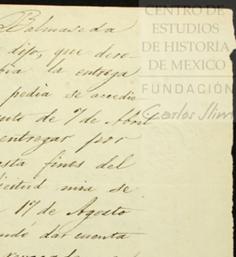 Balmaseda
dijo, que dese-
bia la entrega
pedia se accedio
ento de 7 de Abril
entregar por
asta fines del
icitud mia se
17 de Agosto
andé dar cuenta
CENTRO DE
ESTUDIOS
DE HISTORIA
DE MEXICO
FUNDACIÓN
Carlos Slim